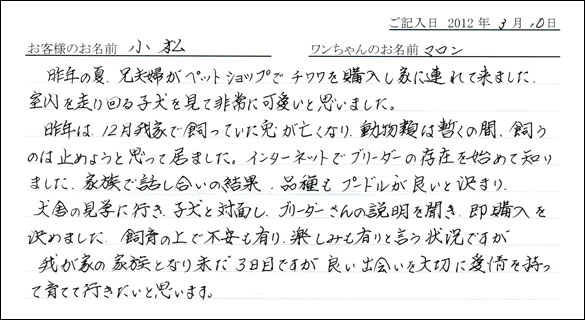 ご記入日 2012年 3月 10日
お客様のお名前 小松 ワンちゃんのお名前 マロン
昨年の夏、兄夫婦がペットショップでチワワを購入し家に連れて来ました、
室内を走り回る子犬を見て非常に可愛いと思いました。
昨年は、12月我家で飼っていた兎が亡くなり、動物類は暫くの間、飼う
のは止めようと思って居ました。インターネットでブリーダーの存在を始めて知り
ました、家族で話し合いの結果、品種もプードルが良いと決まり、
犬舎の見学に行き、子犬と対面し、ブリーダーさんの説明を聞き、即購入を
決めました、飼育の上で不安も有り、楽しみも有りと言う状況ですが
我が家の家族となり未だ3日目ですが良い出会いを大切に愛情を持っ
て育てて行きたいと思います。